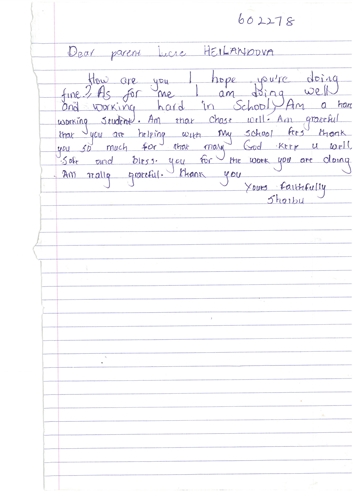 602278
Dear parent Lucie HEILANDOVA
How are you I hope you're doing
fine? As for me I am doing well
and working hard in School. Am a hard
working student. Am that chose well. Am greceful
that you are helping with my school fees thank
you so much for that may God keep u well
Safe and bless you for the work you are doing
Am really greceful. Thank you
Yours faithfully